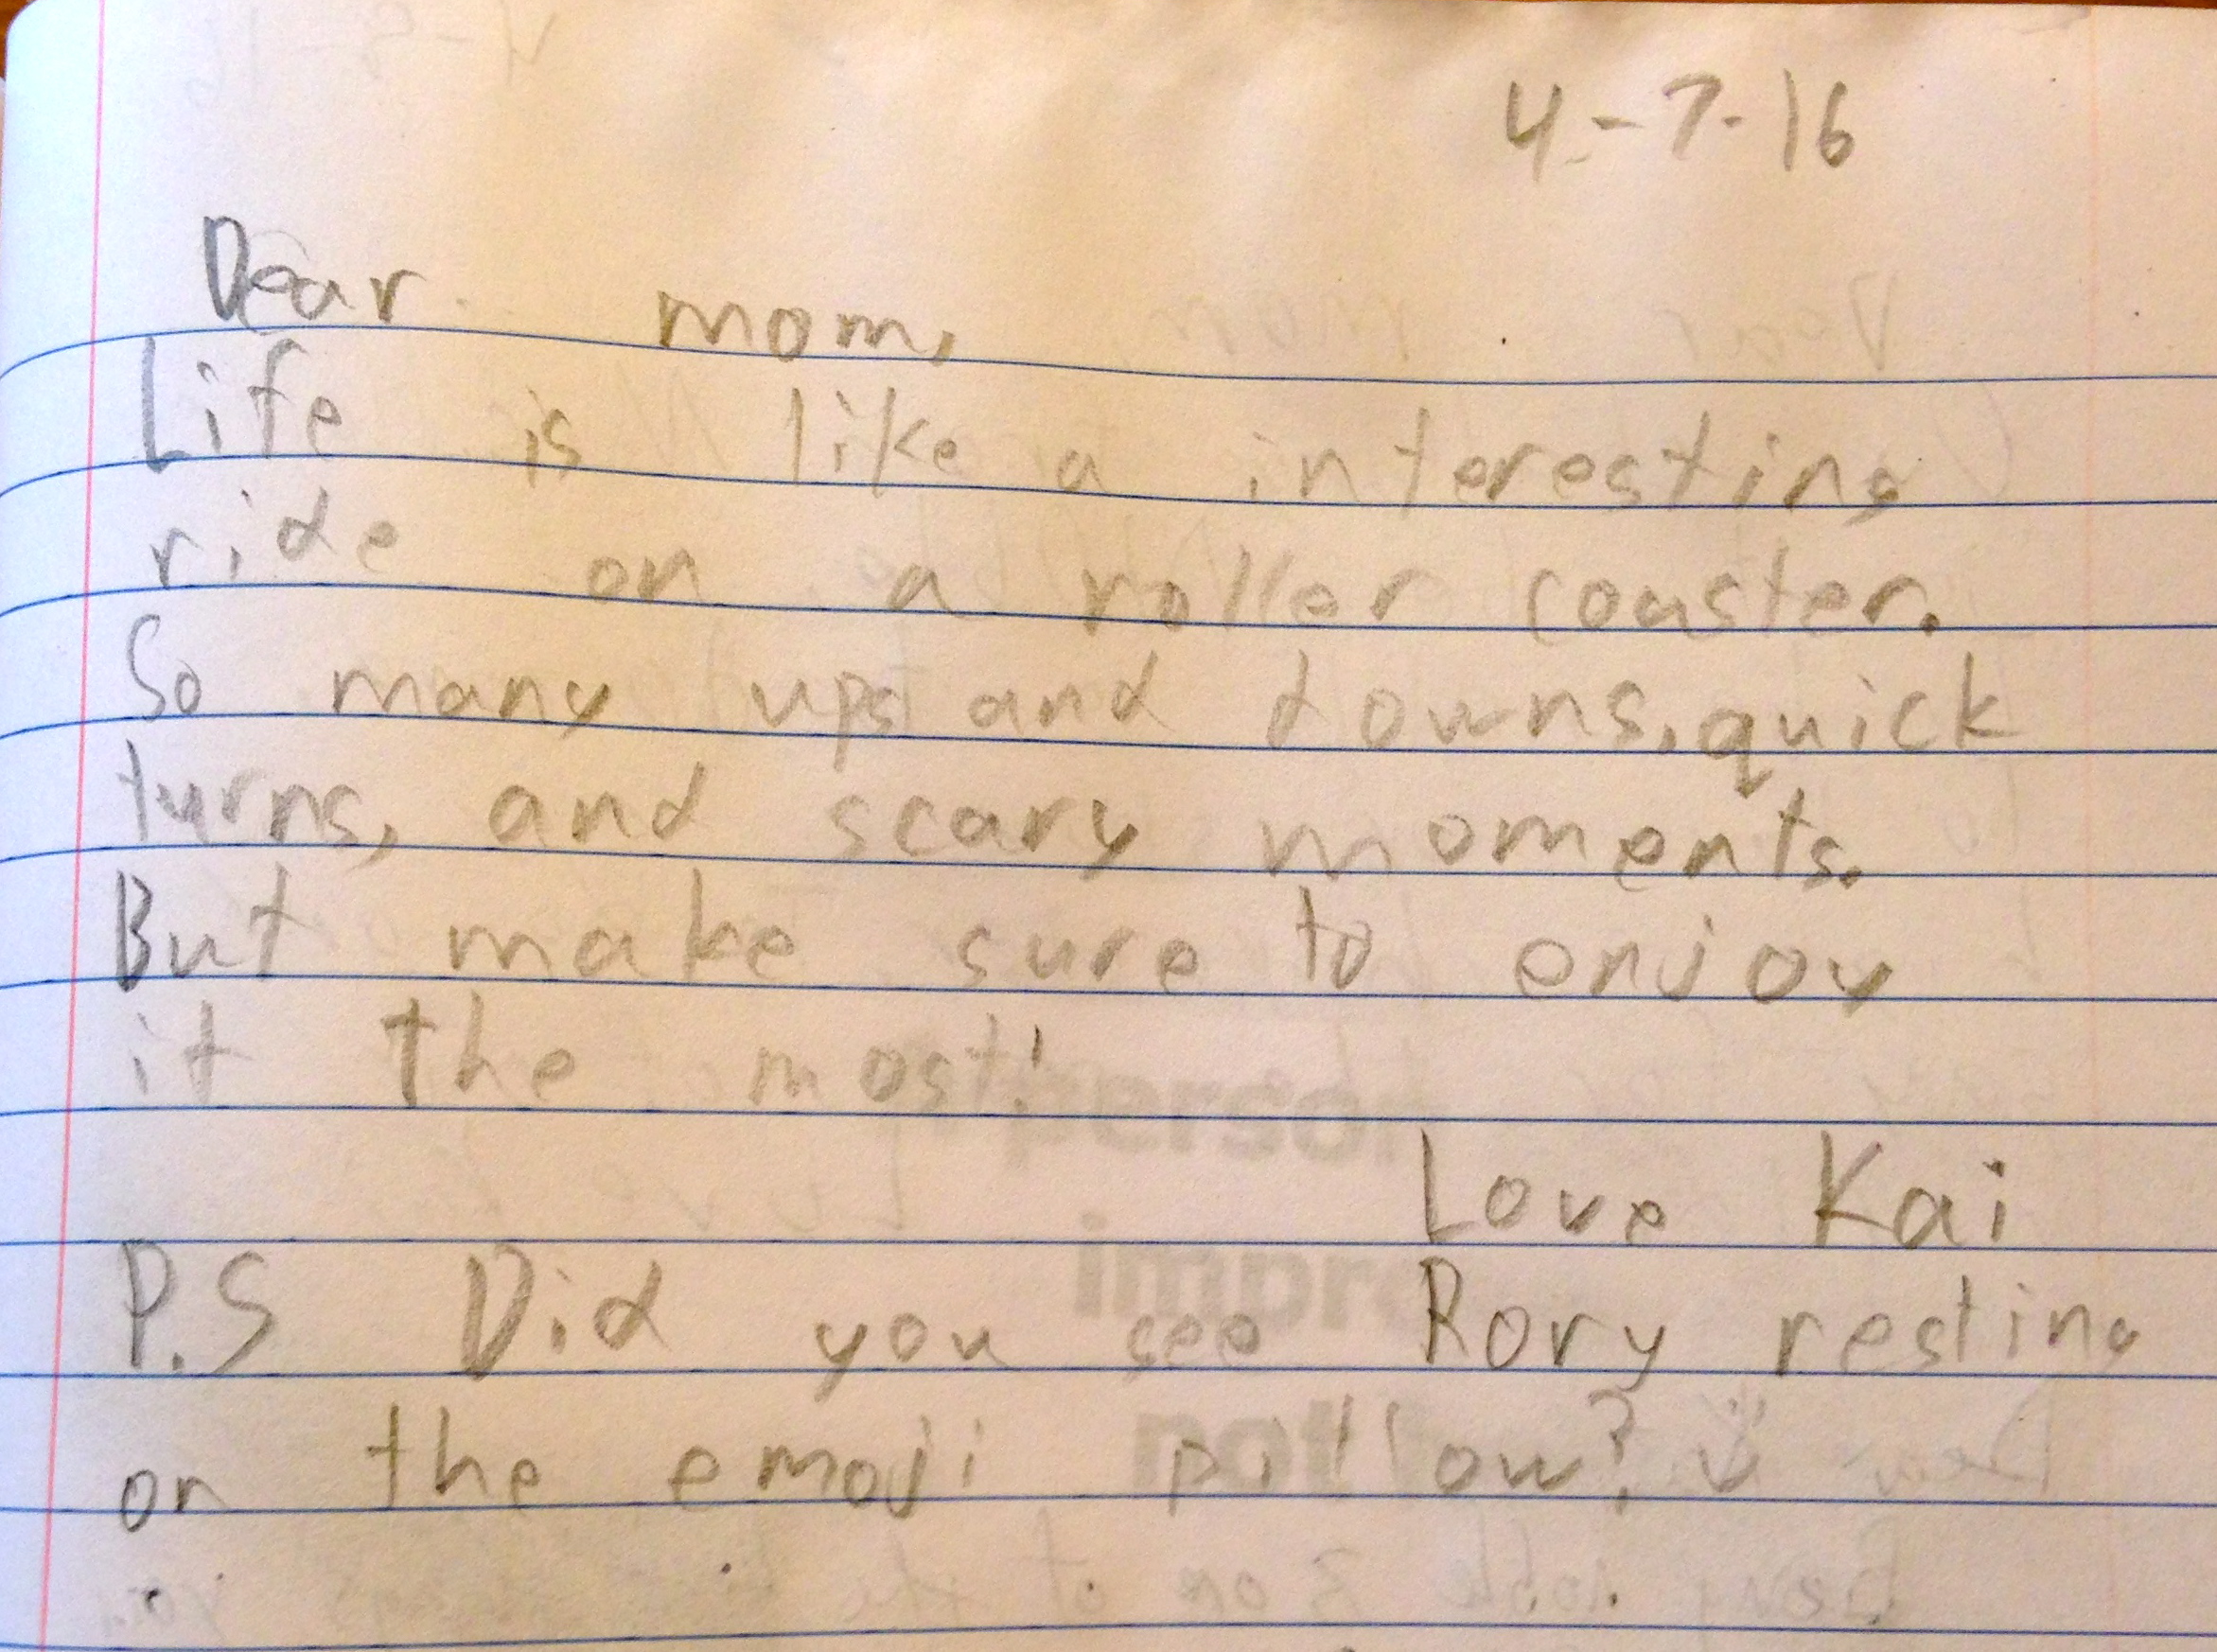 4-7-16
Dear mom,
Life is like a interesting
ride on a roller coaster.
So many ups and downs, quick
turns, and scary moments.
But make sure to enjoy
it the most!
Love Kai
P.S Did you see Rory resting
on the emoji pillow?